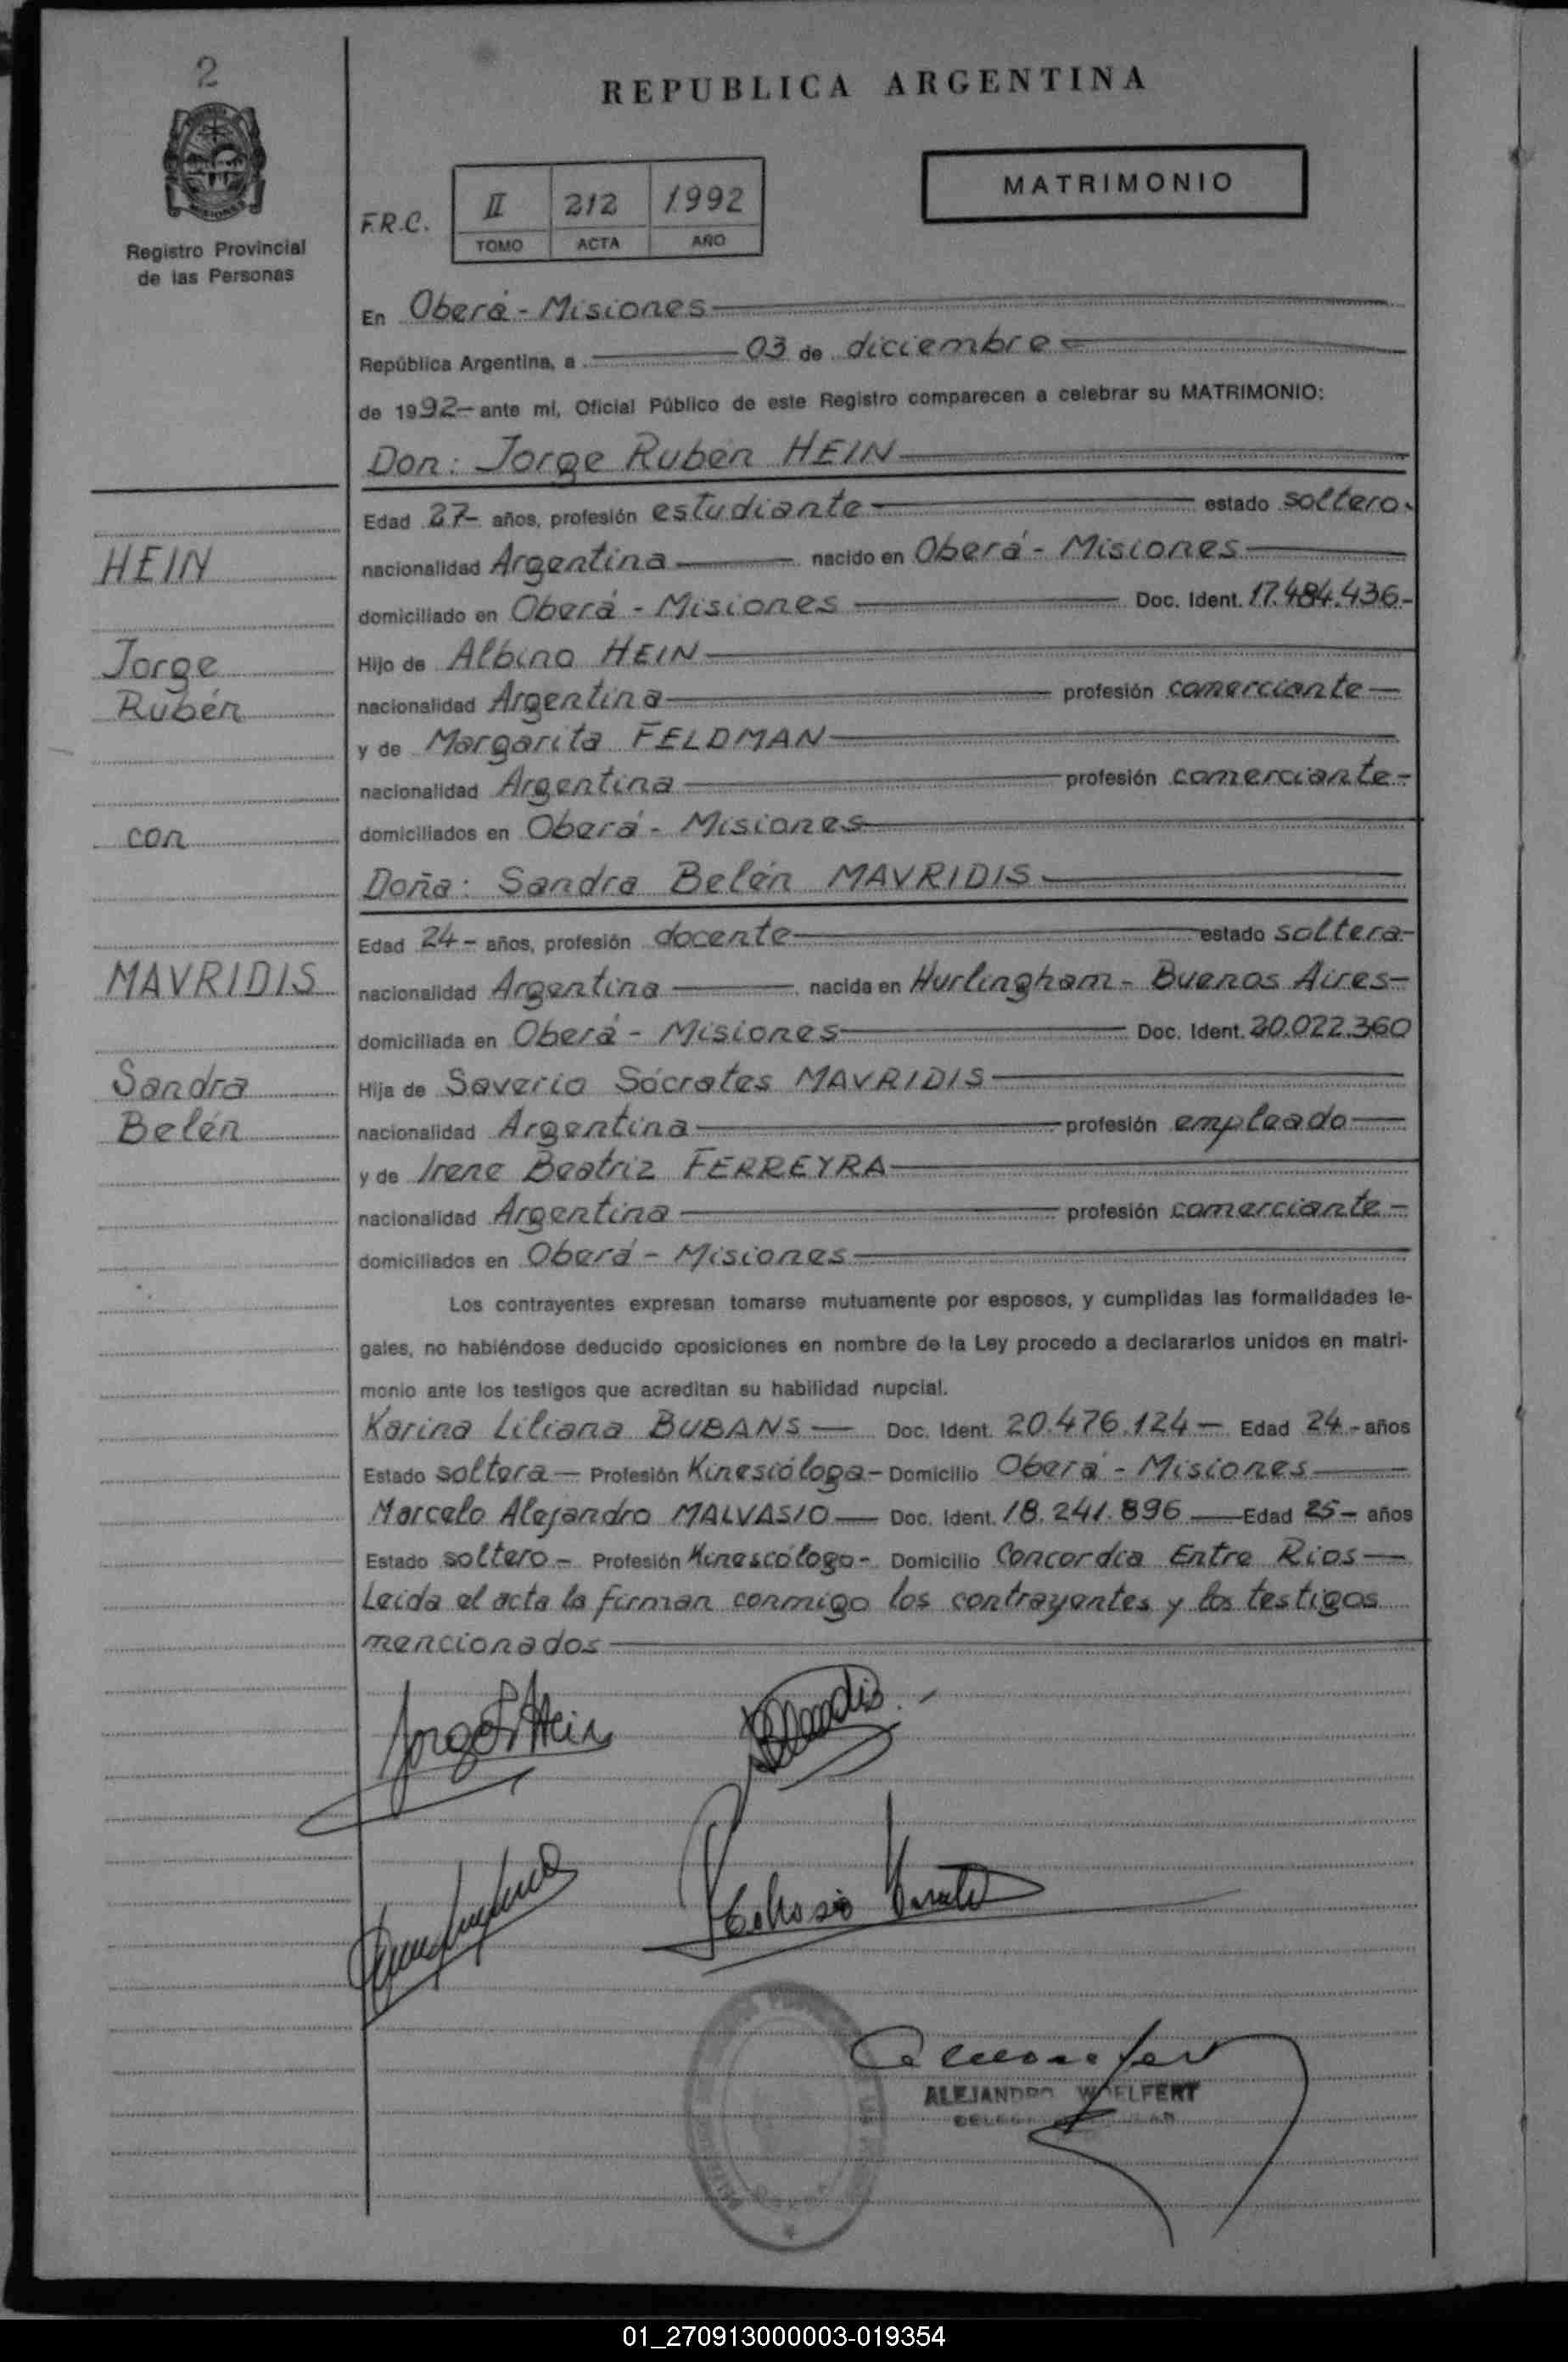 2
REPUBLICA ARGENTINA
MATRIMONIO
F.R.C. II 212 1992
TOMO ACTA AÑO
Registro Provincial
de las Personas
En Oberá - Misiones
República Argentina, a 03 de diciembre
de 1992 - ante mí, Oficial Público de este Registro comparecen a celebrar su MATRIMONIO:
Don: Jorge Rubén HEIN
Edad 27- años, profesión estudiante estado soltero.
HEIN
nacionalidad Argentina nacido en Oberá - Misiones
domiciliado en Oberá - Misiones Doc. Ident. 17.484.436.-
Jorge
Hijo de Albino HEIN
Rubén
nacionalidad Argentina profesión comerciante
y de Margarita FELDMAN
nacionalidad Argentina profesión comerciante-
con
domiciliados en Oberá - Misiones
Doña: Sandra Belén MAVRIDIS
Edad 24- años, profesión docente estado soltera-
MAVRIDIS
nacionalidad Argentina nacida en Hurlingham - Buenos Aires-
domiciliada en Oberá - Misiones Doc. Ident. 20.022.360
Sandra
Hija de Saverio Sócrates MAVRIDIS
Belén
nacionalidad Argentina profesión empleado
y de Irene Beatriz FERREYRA
nacionalidad Argentina profesión comerciante-
domiciliados en Oberá - Misiones
Los contrayentes expresan tomarse mutuamente por esposos, y cumplidas las formalidades le-
gales, no habiéndose deducido oposiciones en nombre de la Ley procedo a declararlos unidos en matri-
monio ante los testigos que acreditan su habilidad nupcial.
Karina Liliana BUBANS Doc. Ident. 20.476.124 Edad 24.- años
Estado soltera Profesión Kinesióloga- Domicilio Oberá - Misiones
Marcelo Alejandro MALVASIO Doc. Ident. 18.241.896 Edad 25- años
Estado soltero- Profesión Kinescólogo- Domicilio Concordia Entre Rios
Leída el acta la firman conmigo los contrayentes y los testigos
mencionados
Jorge R Hein
ALEJANDRO WOELFERT
01_270913000003-019354